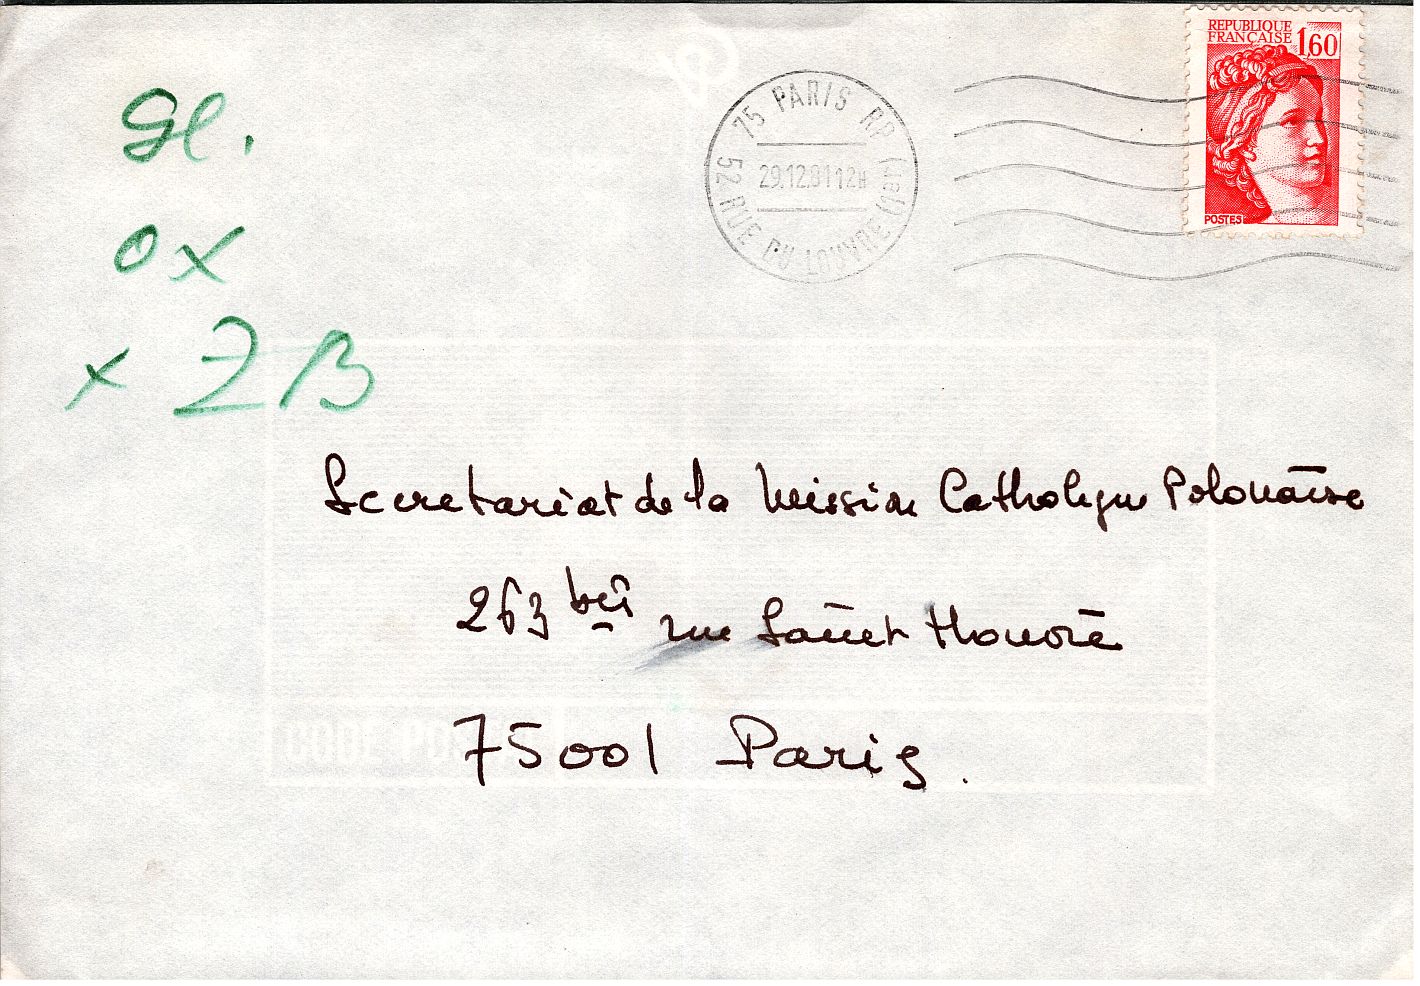 REPUBLIQUE
FRANÇAISE 1,60
POSTES
75 PARIS RP
29.12.81 12H
52 RUE DU LOUVRE (1er)
Gl.
O X
x Z B
Secretariat de la Mission Catholique Polonaise
263 bis rue Saint Honoré
75001 Paris.